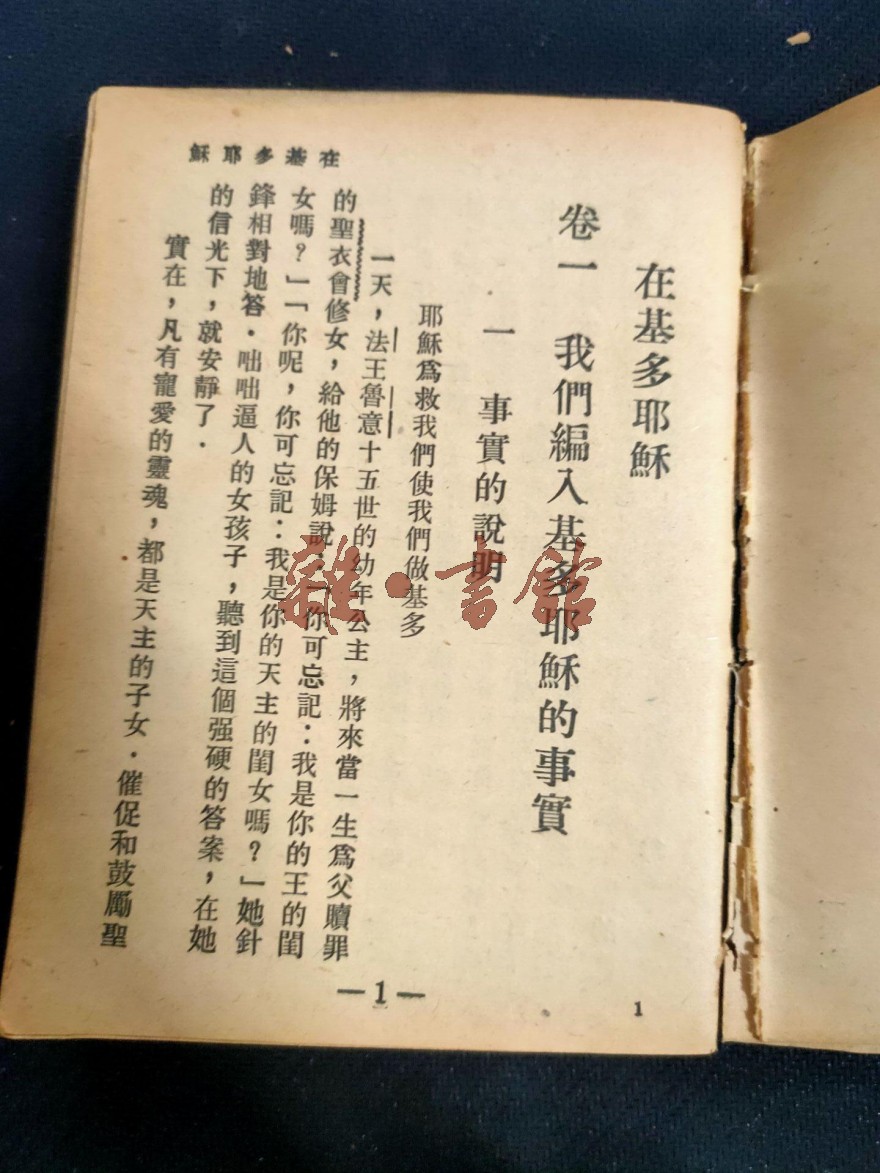 在基多耶穌
卷一　我們編入基多耶穌的事實
一　事實的說明
耶穌爲救我們使我們做基多
一天，法王魯意十五世的幼年公主，將來當一生爲父贖罪
的聖衣會修女，給他的保姆說：「你可忘記：我是你的王的閨
女嗎？」「你呢，你可忘記：我是你的天主的閨女嗎？」她針
鋒相對地答．咄咄逼人的女孩子，聽到這個强硬的答案，在她
的信光下，就安靜了．
實在，凡有寵愛的靈魂，都是天主的子女．催促和鼓勵聖
在基多耶穌
—1—
1
雜·書館